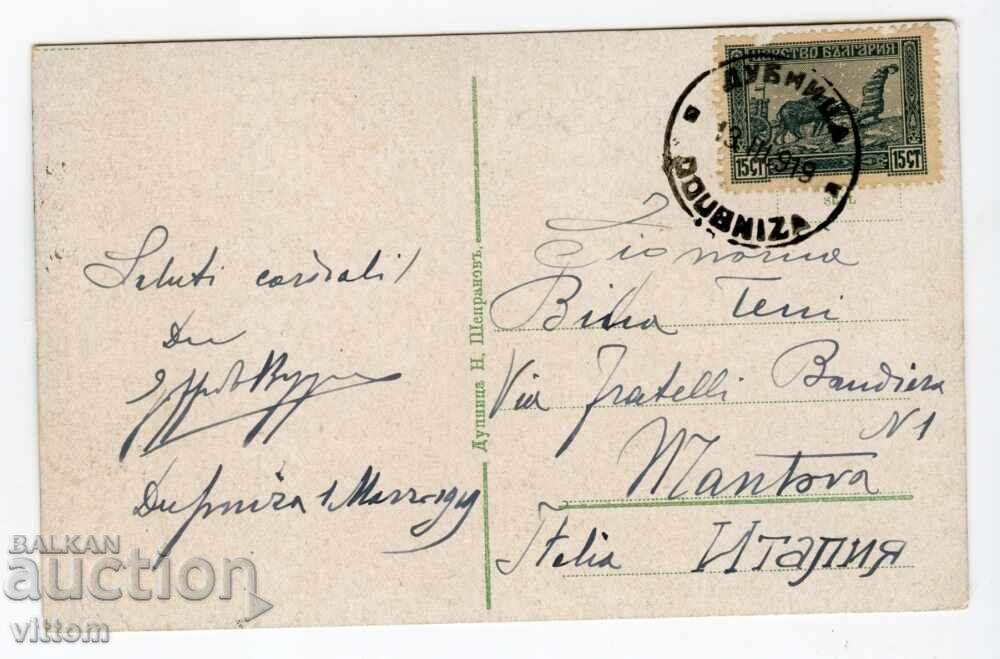 ЦАРСТВО БЪЛГАРИЯ
15 СТ 15 СТ
ДУБНИЦА
13.III.919
DOUBNIZA
Saluti cordiali!
Da
Dupniza 1 Marzo 919
Дупница Н. Щепрановъ.
Signorina
Bina Teni
Via Fratelli Bandiera
N 1
Mantova
Italia Италия
BALKAN
auction
vittom